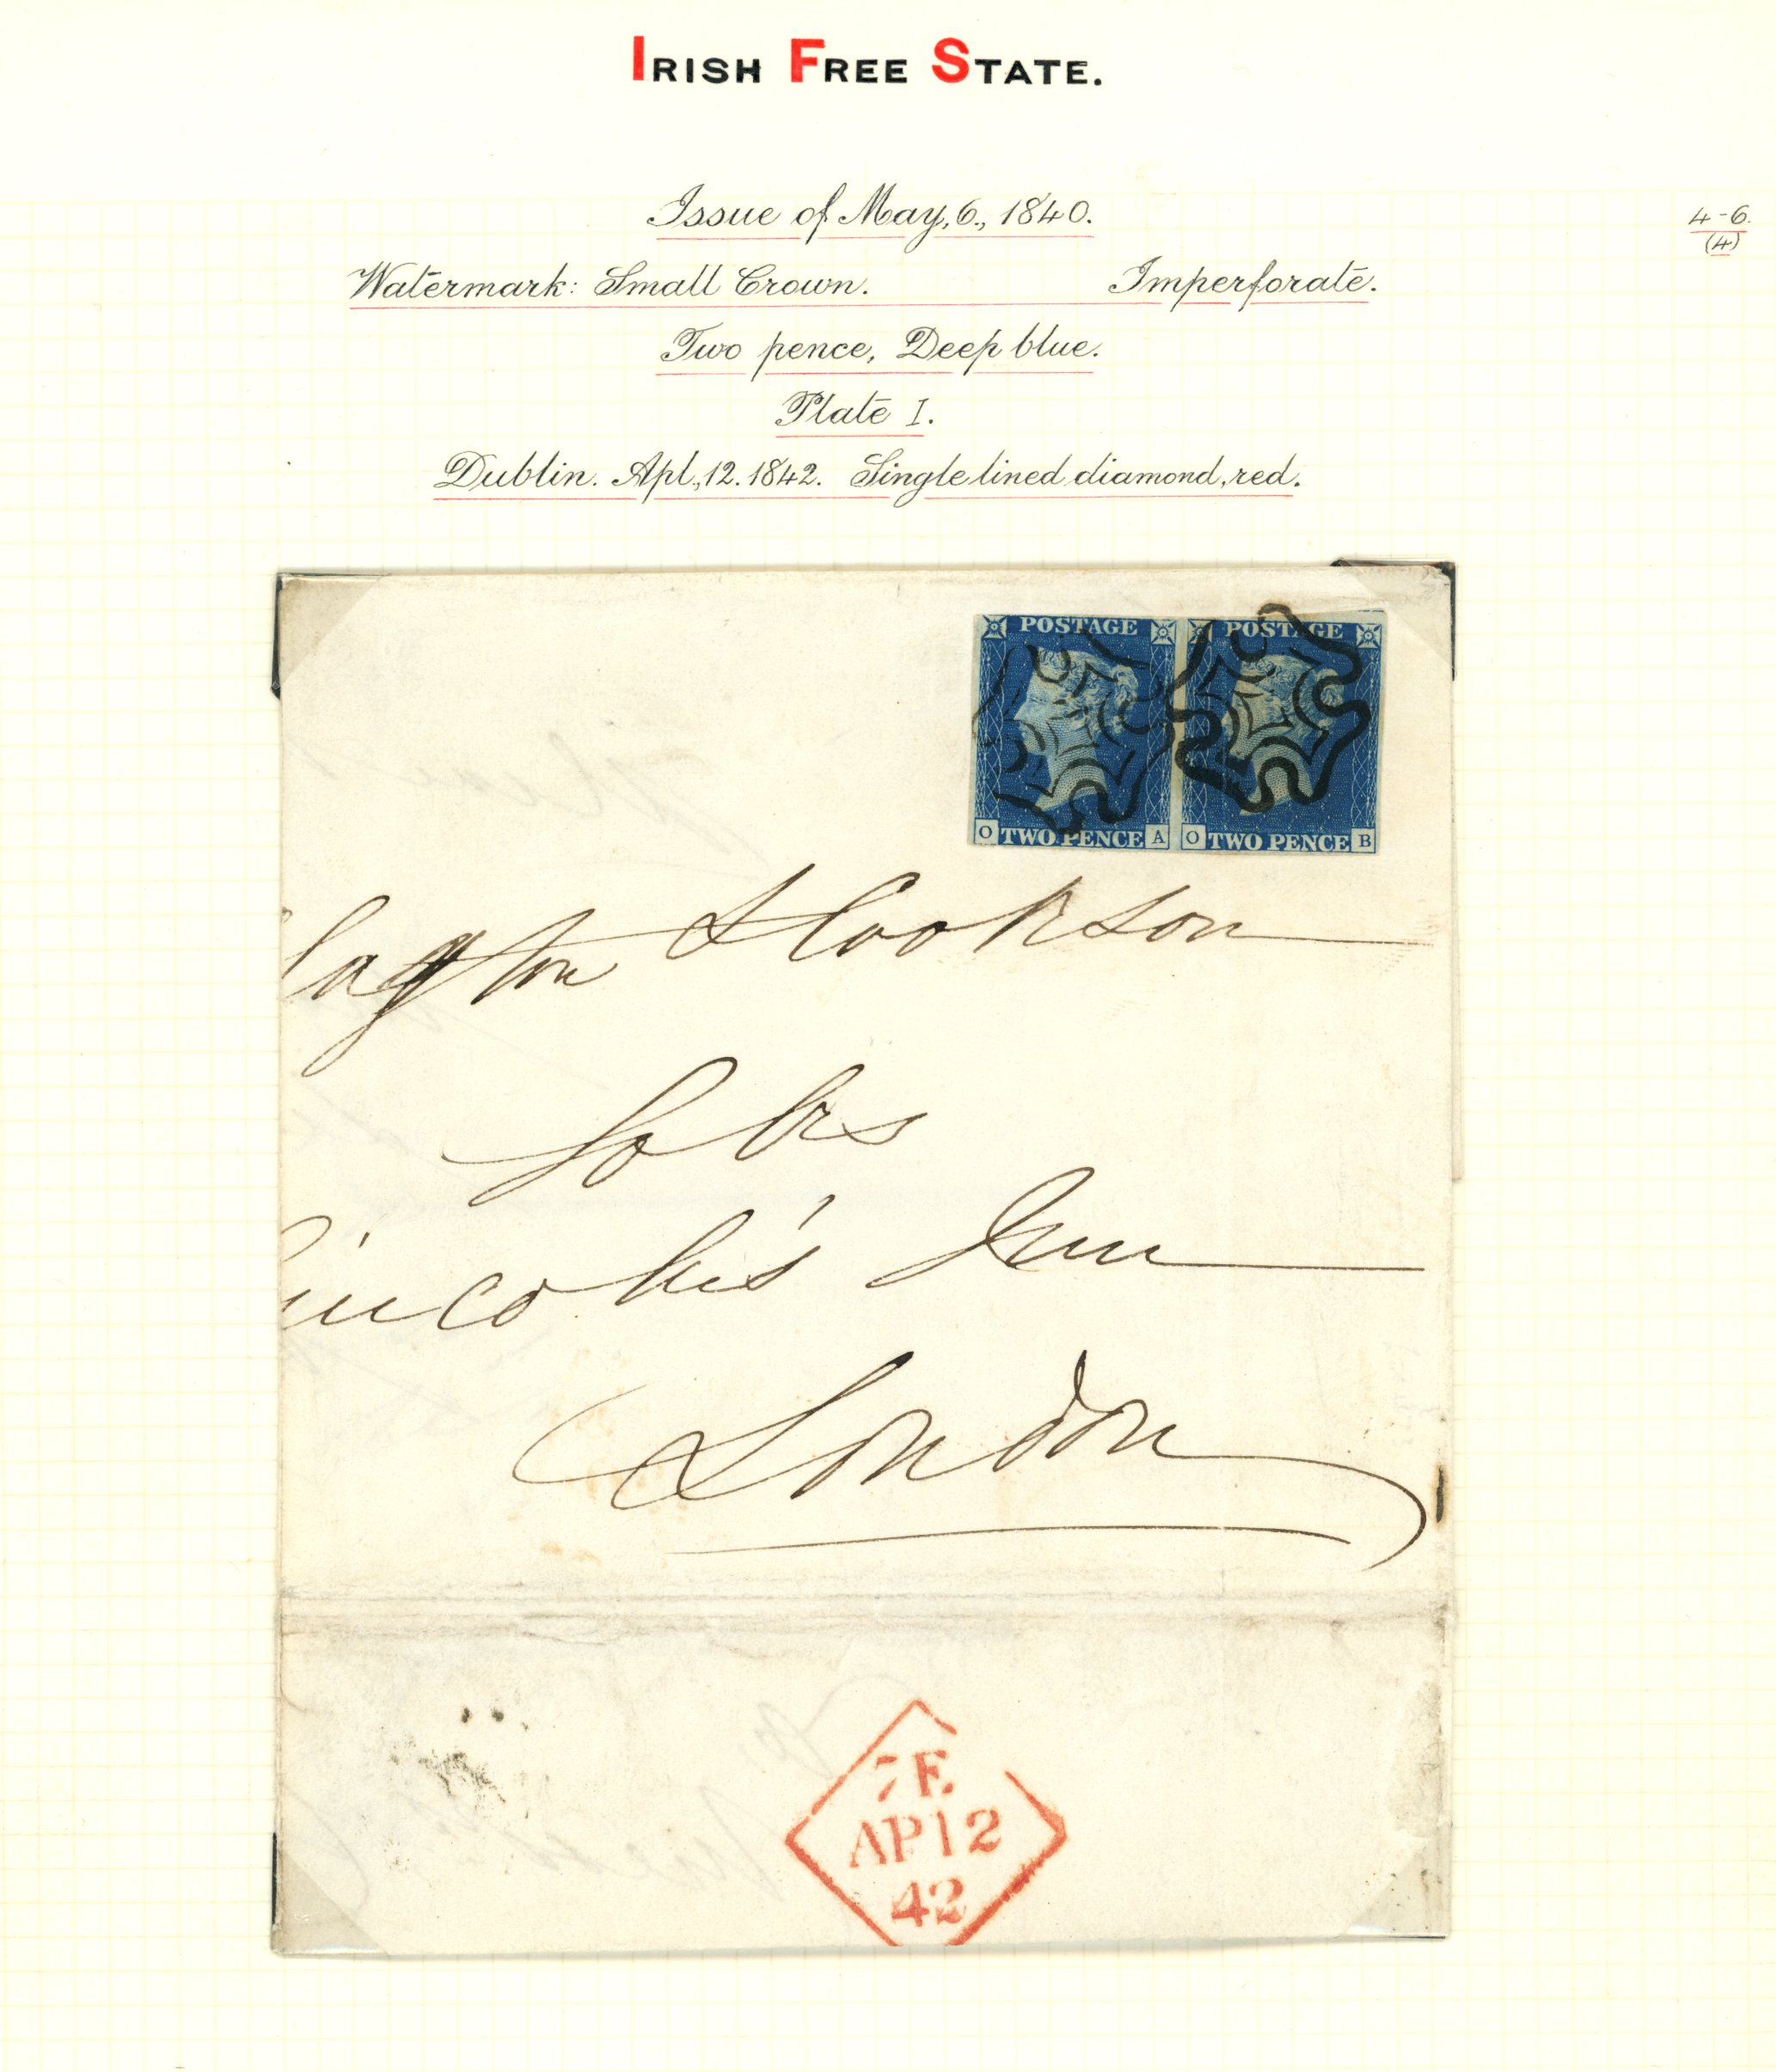 IRISH FREE STATE.
Issue of May, 6., 1840.
4-6.
(4)
Watermark: Small Crown. Imperforate.
Two pence, Deep blue.
Plate I.
Dublin. Apl., 12. 1842. Single lined diamond, red.
POSTAGE POSTAGE
O TWO PENCE A O TWO PENCE B
& Cookson
incoln's Inn
London
7E.
AP12
42